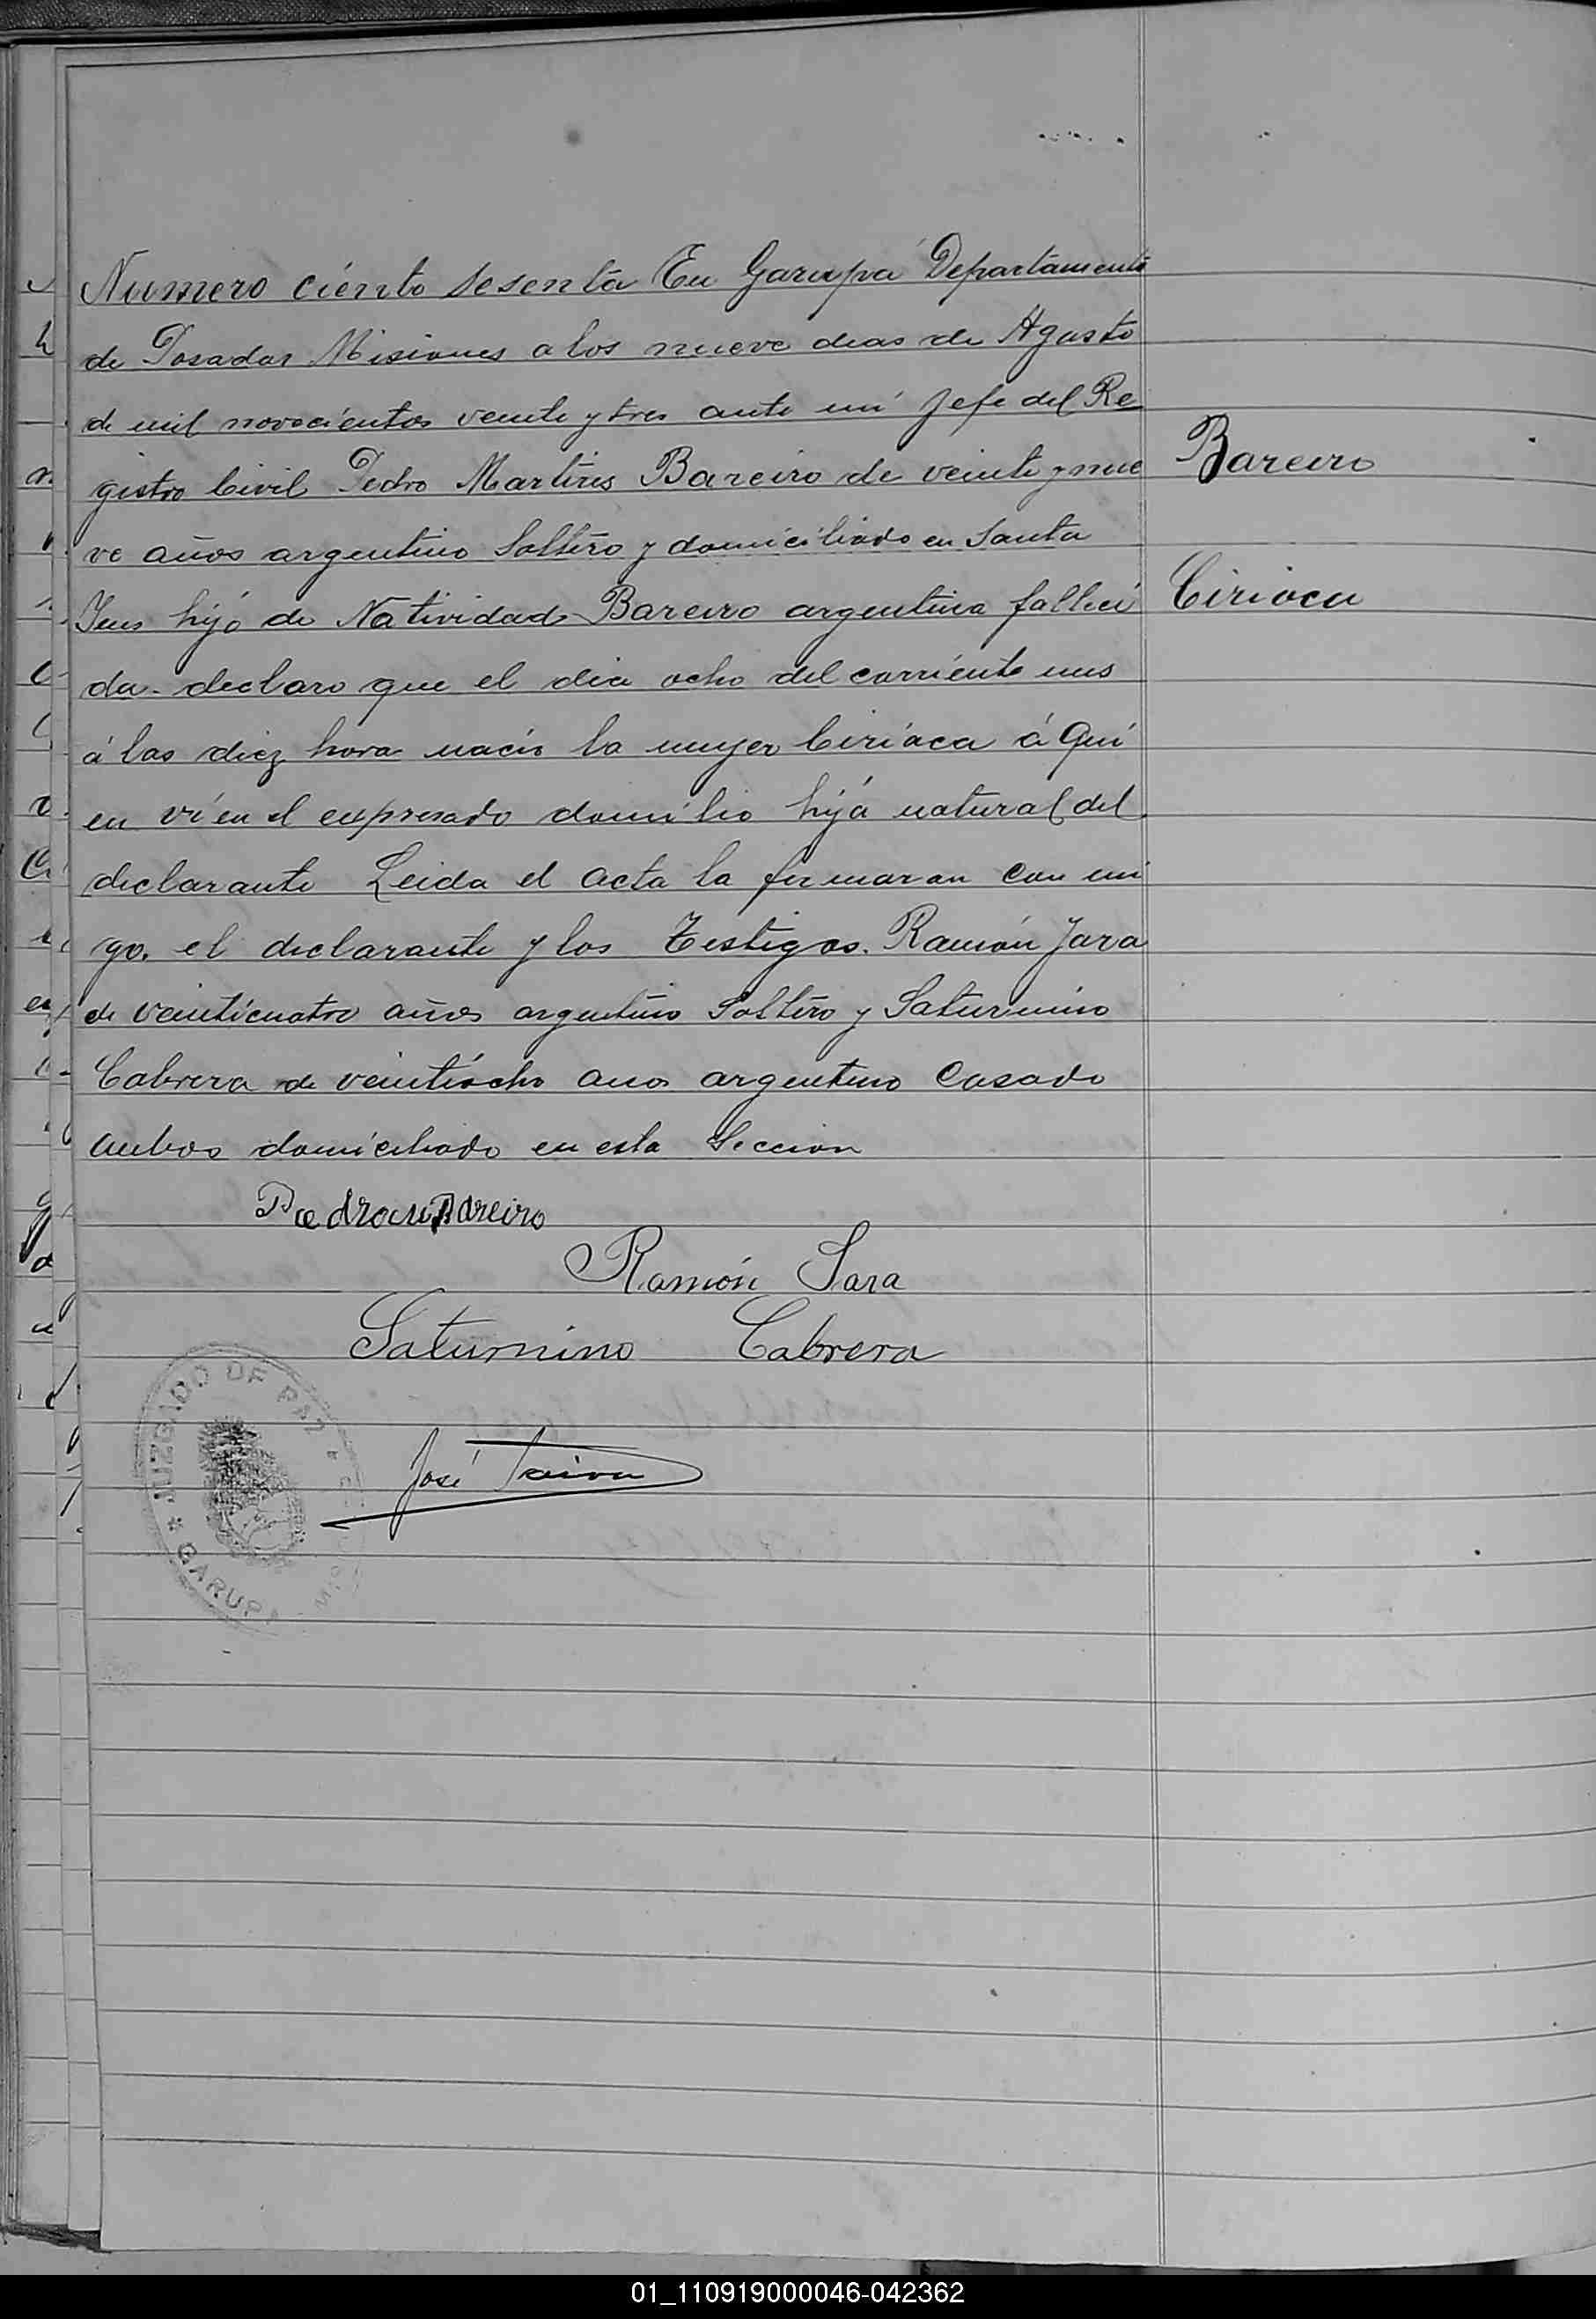 Numero ciento sesenta En Garupá Departamento
de Posadas Misiones a los nueve dias de Agosto
de mil novecientos veinte y tres ante mi Jefe del Re
gistro Civil Pedro Martires Bareiro de veinte y nue
ve años argentino Soltero y domiciliado en Santa
Ines hijo de Natividad Bareiro argentina falleci
da declaro que el dia ocho del corriente mes
á las diez hora nacio la mujer Ciriaca á Qui
en ví en el expresado domilio hija natural del
declarante Leida el acta la firmaran con mi
go. el declarante y los Testigos. Ramón Jara
de veinticuatro años argentino Soltero y Saturnino
Cabrera de veintiocho anos argentino Casado
ambos domiciliado en esta Seccion
Bareiro
Ciriaca
Pedro m Bareiro
Ramón Jara
Saturnino Cabrera
José Paiva
JUZGADO DE PAZ
GARUPA
01_110919000046-042362